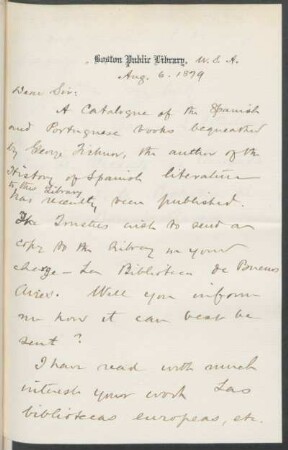 Boston Public Library, U.S.A.
Aug. 6. 1879
Dear Sir:
A Catalogue of the Spanish
and Portuguese books bequeathed
by George Ticknor, the author of the
History of Spanish literature
to this Library
has recently been published.
The Trustees wish to send a
copy to the library in your
charge - La Biblioteca de Buenos
Aires. Will you inform
me how it can best be
sent?
I have read with much
interest your work Las
bibliotecas europeas, etc.